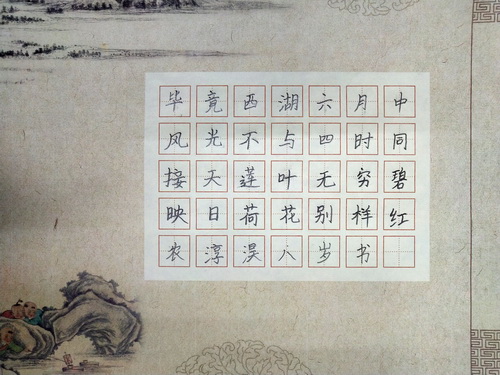 毕竟西湖六月中
风光不与四时同
接天莲叶无穷碧
映日荷花别样红
农淳淏八岁书